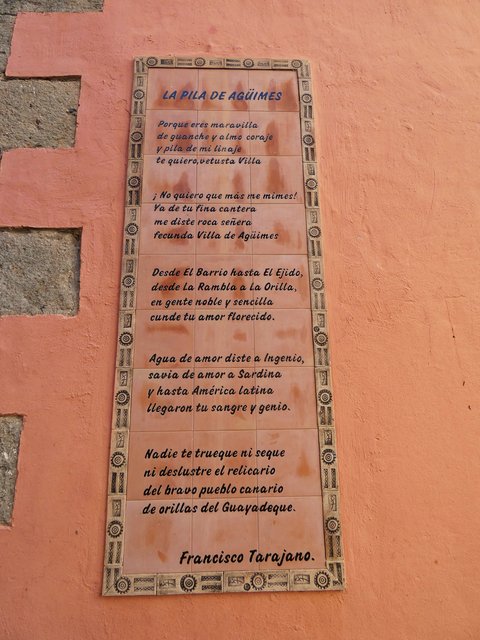 LA PILA DE AGÜIMES
Porque eres maravilla
de guanche y almo coraje
y pila de mi linaje
te quiero,vetusta Villa
¡ No quiero que más me mimes!
Ya de tu fina cantera
me diste roca señera
fecunda Villa de Agüimes
Desde El Barrio hasta El Ejido,
desde La Rambla a La Orilla,
en gente noble y sencilla
cunde tu amor florecido.
Agua de amor diste a Ingenio,
savia de amor a Sardina
y hasta América latina
llegaron tu sangre y genio.
Nadie te trueque ni seque
ni deslustre el relicario
del bravo pueblo canario
de orillas del Guayadeque.
Francisco Tarajano.